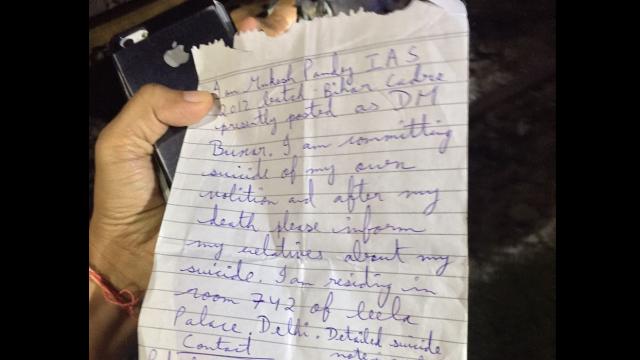 I am Mukesh Pandey IAS
2012 batch Bihar Cadre
presently posted as DM
Buxar. I am committing
suicide of my own
volition and after my
death please inform
my relatives about my
suicide. I am residing in
room 742 of leela
Palace, Delhi. Detailed suicide
Contact note